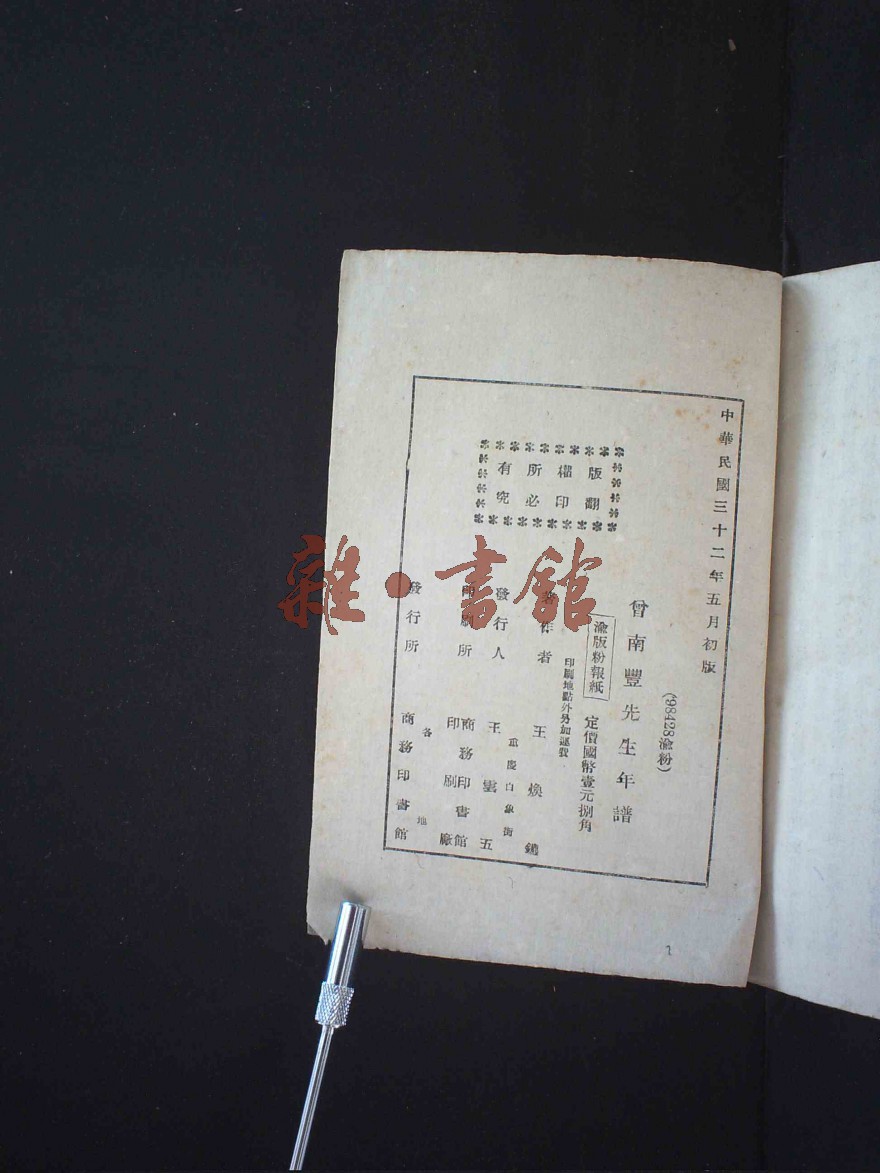 中華民國三十二年五月初版
(98428渝粉)
曾南豐先生年譜
渝版粉報紙
定價國幣壹元捌角
印刷地點外另加運費
版權所有
翻印必究
著作者 王煥鑣
重慶白象街
發行人 王雲五
印刷所 商務印書館印刷廠
各地
發行所 商務印書館
雜·書館